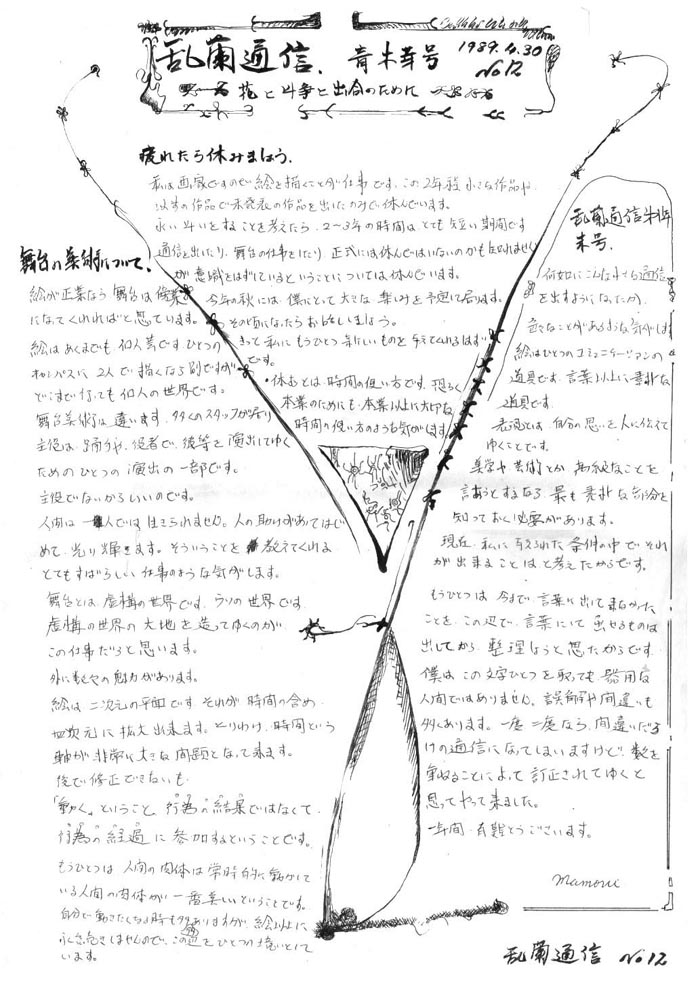 乱蘭通信. 青木幸号
1989.4.30
No 12
花と斗争と出合のために
疲れたら休みましょう.
私は画家ですので絵を描くことが仕事です. この2年程小さな作品や
以前の作品で未発表の作品を出したのみで休んでいます.
永い斗いをすることを考えたら. 2〜3年の時間はとても短い期間です
通信を出したり. 舞台の仕事をしたり. 正式には休んではいないのかも知れません
が意識をはずしているということについては休んでいます.
今年の秋には. 僕にとって大きな楽しみを予定して居ります.
その頃になったらお話ししましょう.
きっと私にもうひとつ新しいものを与えてくれるはず
です.
・休むとは. 時間の使い方です. 恐らく
本業のためにも. 本業以上に大切な
時間の使い方のような気がします.
舞台の美術について.
絵が正業なら舞台は
になってくれればと思っています.
絵はあくまでも. 個人芸です. ひとつの
キャンバスに 2人で描くなら別ですが
どこまで行っても 個人の世界です.
舞台美術は違います. 多くのスタッフが居り
主役は. 踊り手や. 役者で. 彼等を演出してゆく
ためのひとつの演出の一部です.
主役でないからいいのです.
人間は一人では生きられません. 人の助けがあってはじ
めて. 光り輝きます. そういうことを教えてくれる
とてもすばらしい仕事のような気がします.
舞台とは. 虚構の世界です. ウソの世界です.
虚構の世界の大地を造ってゆくのが
この仕事だろと思います.
外に数々の魅力があります.
絵は二次元の平面です それが時間の含め.
四次元に拡大出来ます. とりわけ. 時間という
軸が非常に大きな問題となって来ます.
後で修正できないも.
「動く」ということ. 行為の結果ではなくて.
行為の経過に参加するということです.
もうひとつは 人間の肉体は常時的に動いて
いる人間の肉体が一番美しいということです.
自分で動きたくなる時も多々ありますが. 絵以上に
います.
乱蘭通信
末号.
何故にこんな小さな通信
を出すようになったか.
色々なことがあるような気がします
絵はひとつのコミュニケーションの
道具です. 言葉以上に素朴な
道具です.
表現とは. 自分の思いを人に伝えて
ゆくことです.
美学や芸術とか 高級なことを
言おうとするなら 最も素朴な気分を
知っておく必要があります.
現在. 私に与えられた条件の中でそれ
が出来ることはと考えたからです.
もうひとつは 今まで. 言葉に出して来なかった
ことを. この辺で. 言葉にして出せるものは
出してから. 整理しようと思ったからです.
僕はこの文字ひとつを取っても 器用な
人間ではありません. 誤解や間違いも
多くあります. 一度二度なら. 間違いだら
けの通信になってしまいますけど. 数を
重ねることによって訂正されてゆくと
思ってやって来ました.
一年間. 有難とうございます.
Mamoru
乱蘭通信 No 12